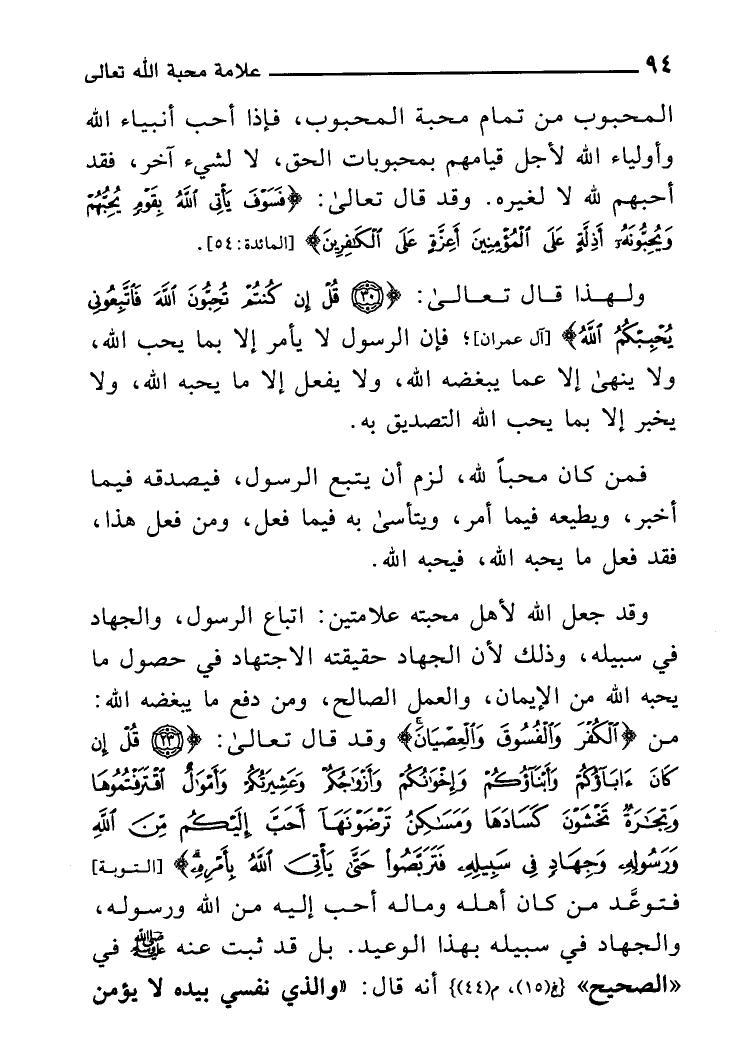 ٩٤ علامة محبة الله تعالى
المحبوب من تمام محبة المحبوب، فإذا أحب أنبياء الله
وأولياء الله لأجل قيامهم بمحبوبات الحق، لا لشيء آخر، فقد
أحبهم لله لا لغيره. وقد قال تعالىٰ: ﴿فَسَوْفَ يَأْتِى ٱللَّهُ بِقَوْمٍ يُحِبُّهُمْ
وَيُحِبُّونَهُۥٓ أَذِلَّةٍ عَلَى ٱلْمُؤْمِنِينَ أَعِزَّةٍ عَلَى ٱلْكَٰفِرِينَ﴾ [المائدة: ٥٤].
ولهذا قال تعالىٰ: ﴿٣٠ قُلْ إِن كُنتُمْ تُحِبُّونَ ٱللَّهَ فَٱتَّبِعُونِى
يُحْبِبْكُمُ ٱللَّهُ﴾ [آل عمران]؛ فإن الرسول لا يأمر إلا بما يحب الله،
ولا ينهىٰ إلا عما يبغضه الله، ولا يفعل إلا ما يحبه الله، ولا
يخبر إلا بما يحب الله التصديق به.
فمن كان محباً لله، لزم أن يتبع الرسول، فيصدقه فيما
أخبر، ويطيعه فيما أمر، ويتأسىٰ به فيما فعل، ومن فعل هذا،
فقد فعل ما يحبه الله، فيحبه الله.
وقد جعل الله لأهل محبته علامتين: اتباع الرسول، والجهاد
في سبيله، وذلك لأن الجهاد حقيقته الاجتهاد في حصول ما
يحبه الله من الإيمان، والعمل الصالح، ومن دفع ما يبغضه الله:
من ﴿ٱلْكُفْرَ وَٱلْفُسُوقَ وَٱلْعِصْيَانَۚ﴾ وقد قال تعالىٰ: ﴿٢٣ قُلْ إِن
كَانَ ءَابَآؤُكُمْ وَأَبْنَآؤُكُمْ وَإِخْوَٰنُكُمْ وَأَزْوَٰجُكُمْ وَعَشِيرَتُكُمْ وَأَمْوَٰلٌ ٱقْتَرَفْتُمُوهَا
وَتِجَٰرَةٌ تَخْشَوْنَ كَسَادَهَا وَمَسَٰكِنُ تَرْضَوْنَهَآ أَحَبَّ إِلَيْكُم مِّنَ ٱللَّهِ
وَرَسُولِهِۦ وَجِهَادٍ فِى سَبِيلِهِۦ فَتَرَبَّصُوا۟ حَتَّىٰ يَأْتِىَ ٱللَّهُ بِأَمْرِهِۦۗ﴾ [التوبة]
فتوعَّد من كان أهله وماله أحب إليه من الله ورسوله،
والجهاد في سبيله بهذا الوعيد. بل قد ثبت عنه ﷺ في
«الصحيح» {خ(١٥)، م(٤٤)} أنه قال: «والذي نفسي بيده لا يؤمن